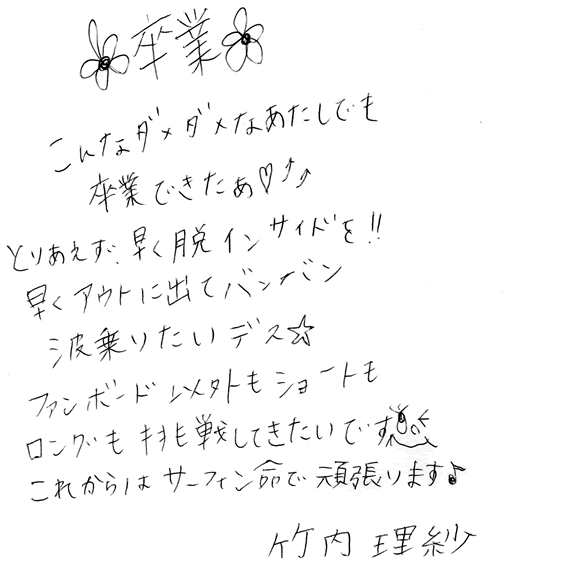 卒業
こんなダメダメなあたしでも
卒業できたあ♡⤴⤴
とりあえず、早く脱インサイドを!!
早くアウトに出てバンバン
波乗りたいデス☆
ファンボード以外もショートも
ロングも挑戦してきたいです
これからはサーフィン命で頑張ります♪
竹内理紗